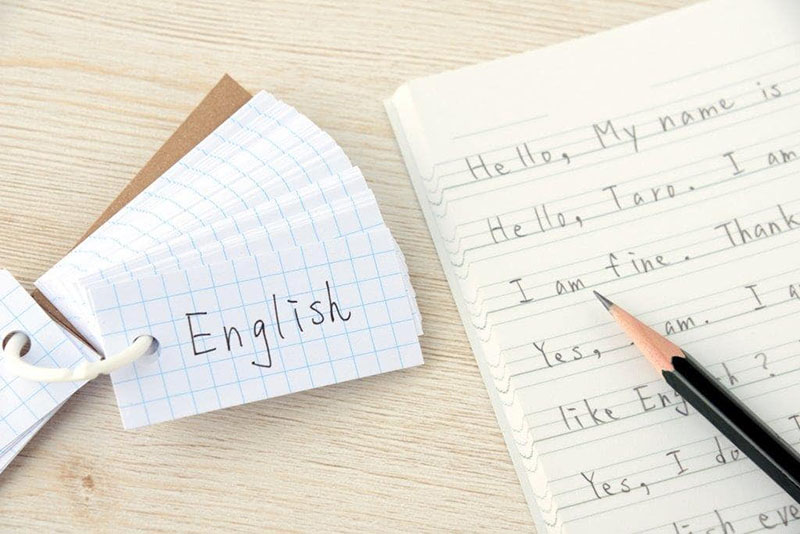 English
Hello, My name is
Hello, Taro. I am
I am fine. Thank
Yes, I am. I a
like English?
Yes, I do
English eve